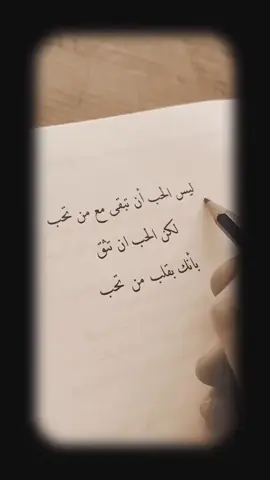 ليس الحب أن تبقى مع من تحب
لكن الحب ان تثق
بأنك بقلب من تحب